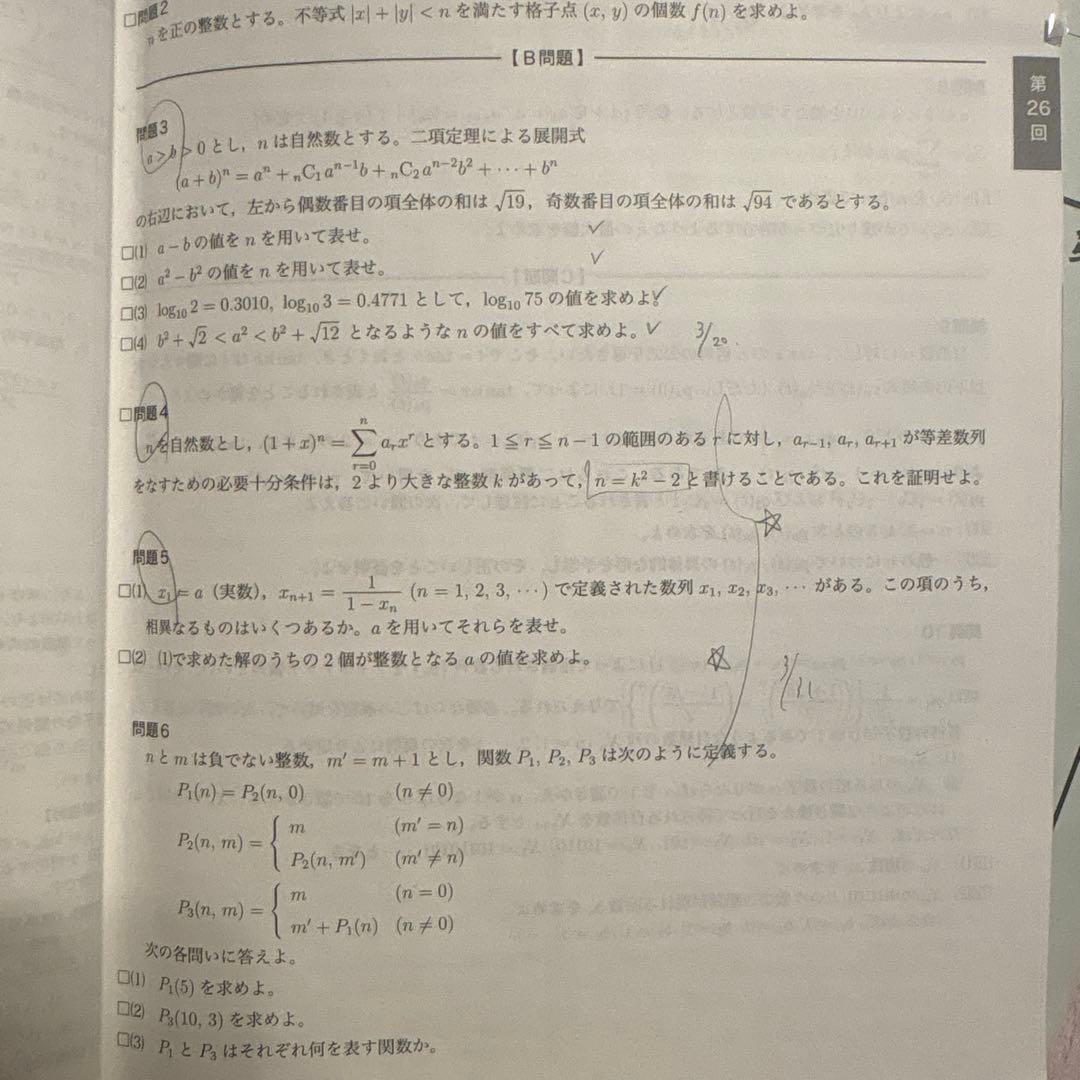 □問題2
nを正の整数とする。不等式 |x| + |y| < n を満たす格子点 (x, y) の個数 f(n) を求めよ。
【B問題】
第26回
問題3
a > b > 0 とし，n は自然数とする。二項定理による展開式
(a + b)ⁿ = aⁿ + ₙC₁aⁿ⁻¹b + ₙC₂aⁿ⁻²b² + ⋯ + bⁿ
の右辺において，左から偶数番目の項全体の和は √19，奇数番目の項全体の和は √94 であるとする。
□(1) a − b の値を n を用いて表せ。
□(2) a² − b² の値を n を用いて表せ。
□(3) log₁₀ 2 = 0.3010, log₁₀ 3 = 0.4771 として，log₁₀ 75 の値を求めよ。
□(4) b² + √2 < a² < b² + √12 となるような n の値をすべて求めよ。 3/20.
□問題4
nを自然数とし，(1 + x)ⁿ = Σ[r=0→n] aᵣxʳ とする。1 ≦ r ≦ n − 1 の範囲のある r に対し，aᵣ₋₁, aᵣ, aᵣ₊₁ が等差数列
をなすための必要十分条件は，2 より大きな整数 k があって，n = k² − 2 と書けることである。これを証明せよ。
問題5
□(1) x₁ = a (実数)，xₙ₊₁ = 1/(1 − xₙ) (n = 1, 2, 3, ⋯) で定義された数列 x₁, x₂, x₃, ⋯ がある。この項のうち，
相異なるものはいくつあるか。a を用いてそれらを表せ。
□(2) (1)で求めた解のうちの 2 個が整数となる a の値を求めよ。
問題6
n と m は負でない整数，m′ = m + 1 とし，関数 P₁, P₂, P₃ は次のように定義する。
P₁(n) = P₂(n, 0) (n ≠ 0)
P₂(n, m) = { m (m′ = n)
P₂(n, m′) (m′ ≠ n)
P₃(n, m) = { m (n = 0)
m′ + P₁(n) (n ≠ 0)
次の各問いに答えよ。
□(1) P₁(5) を求めよ。
□(2) P₃(10, 3) を求めよ。
□(3) P₁ と P₃ はそれぞれ何を表す関数か。